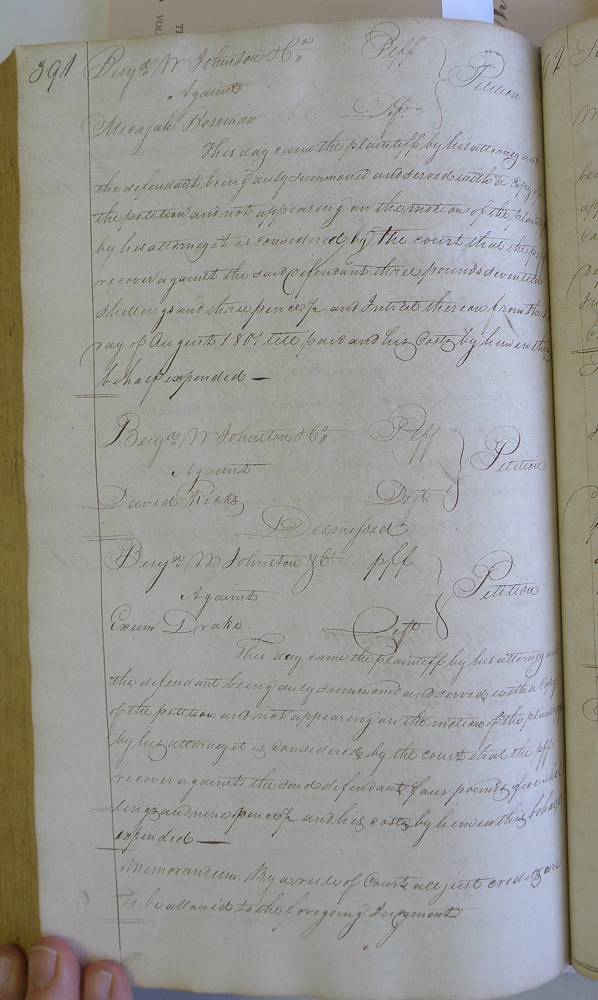 391
Benja W Johnston & Co Plff
Against
Petition
Micajah Boseman Deft
This day came the plaintiff by his attorney and
the defendant being duly summoned and served with a Copy of
the petition and not appearing on the motion of the plaintiff
by his attorney it is considered by the court that the plff
recover against the said defendant three pounds seventeen
shillings and three pence ½ and Interest thereon from the
day of August 1801 till paid and his Costs by him in this
behalf expended —
Benja W Johnston & Co Plff
Against
Petition
David Ricks Deft
Dismissed
Benja W Johnston & Co plff
Against
Petition
Exum Drake Deft
This day came the plaintiff by his attorney and
the defendant being duly summoned and served with a Copy
of the petition and not appearing on the motion of the plaintiff
by his attorney it is considered by the court that the plff
recover against the said defendant four pounds five shil
lings and nine pence ½ and his costs by him in this behalf
expended —
Memorandum. By a rule of Court all just credits are
to be allowed to the foregoing Judgment